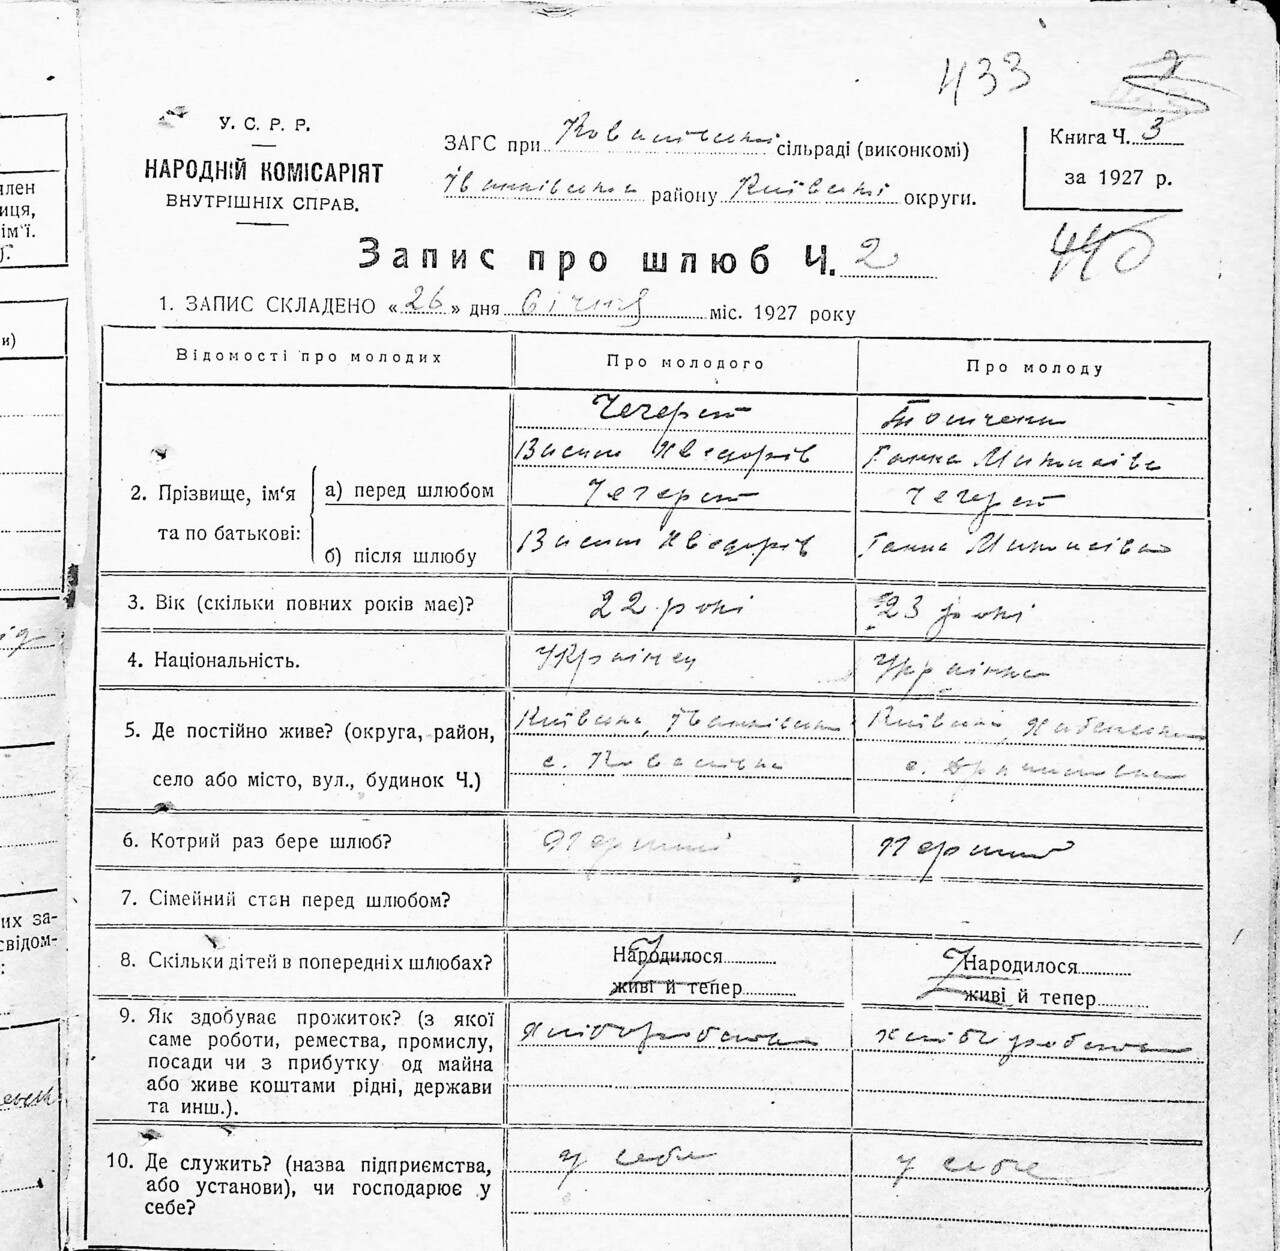 433
У. С. Р. Р.
НАРОДНІЙ КОМІСАРІЯТ
ВНУТРІШНІХ СПРАВ.
ЗАГС при сільраді (виконкомі)
Іванківська району Київські округи.
Книга Ч. 3
за 1927 р.
Запис про шлюб Ч. 2
1. ЗАПИС СКЛАДЕНО «26» дня Січня міс. 1927 року
Відомості про молодих
Про молодого
Про молоду
2. Прізвище, ім'я
та по батькові:
а) перед шлюбом
б) після шлюбу
Чечерет
Василь Хведорів
Чечерет
Василь Хведорів
Ганна Миколаївна
Чечерет
Ганна Миколаївна
3. Вік (скільки повних років має)?
22 рокі
23 рокі
4. Національність.
Українец
Українка
5. Де постійно живе? (округа, район,
село або місто, вул., будинок Ч.)
Київська, Іванківська
с.
с.
6. Котрий раз бере шлюб?
Перший
Перший
7. Сімейний стан перед шлюбом?
8. Скільки дітей в попередніх шлюбах?
Народилося
живі й тепер
Народилося
живі й тепер
9. Як здобуває прожиток? (з якої
саме роботи, ремества, промислу,
посади чи з прибутку од майна
або живе коштами рідні, держави
та инш.).
хліборобством
хліборобством
10. Де служить? (назва підприємства,
або установи), чи господарює у
себе?
у себе
у себе